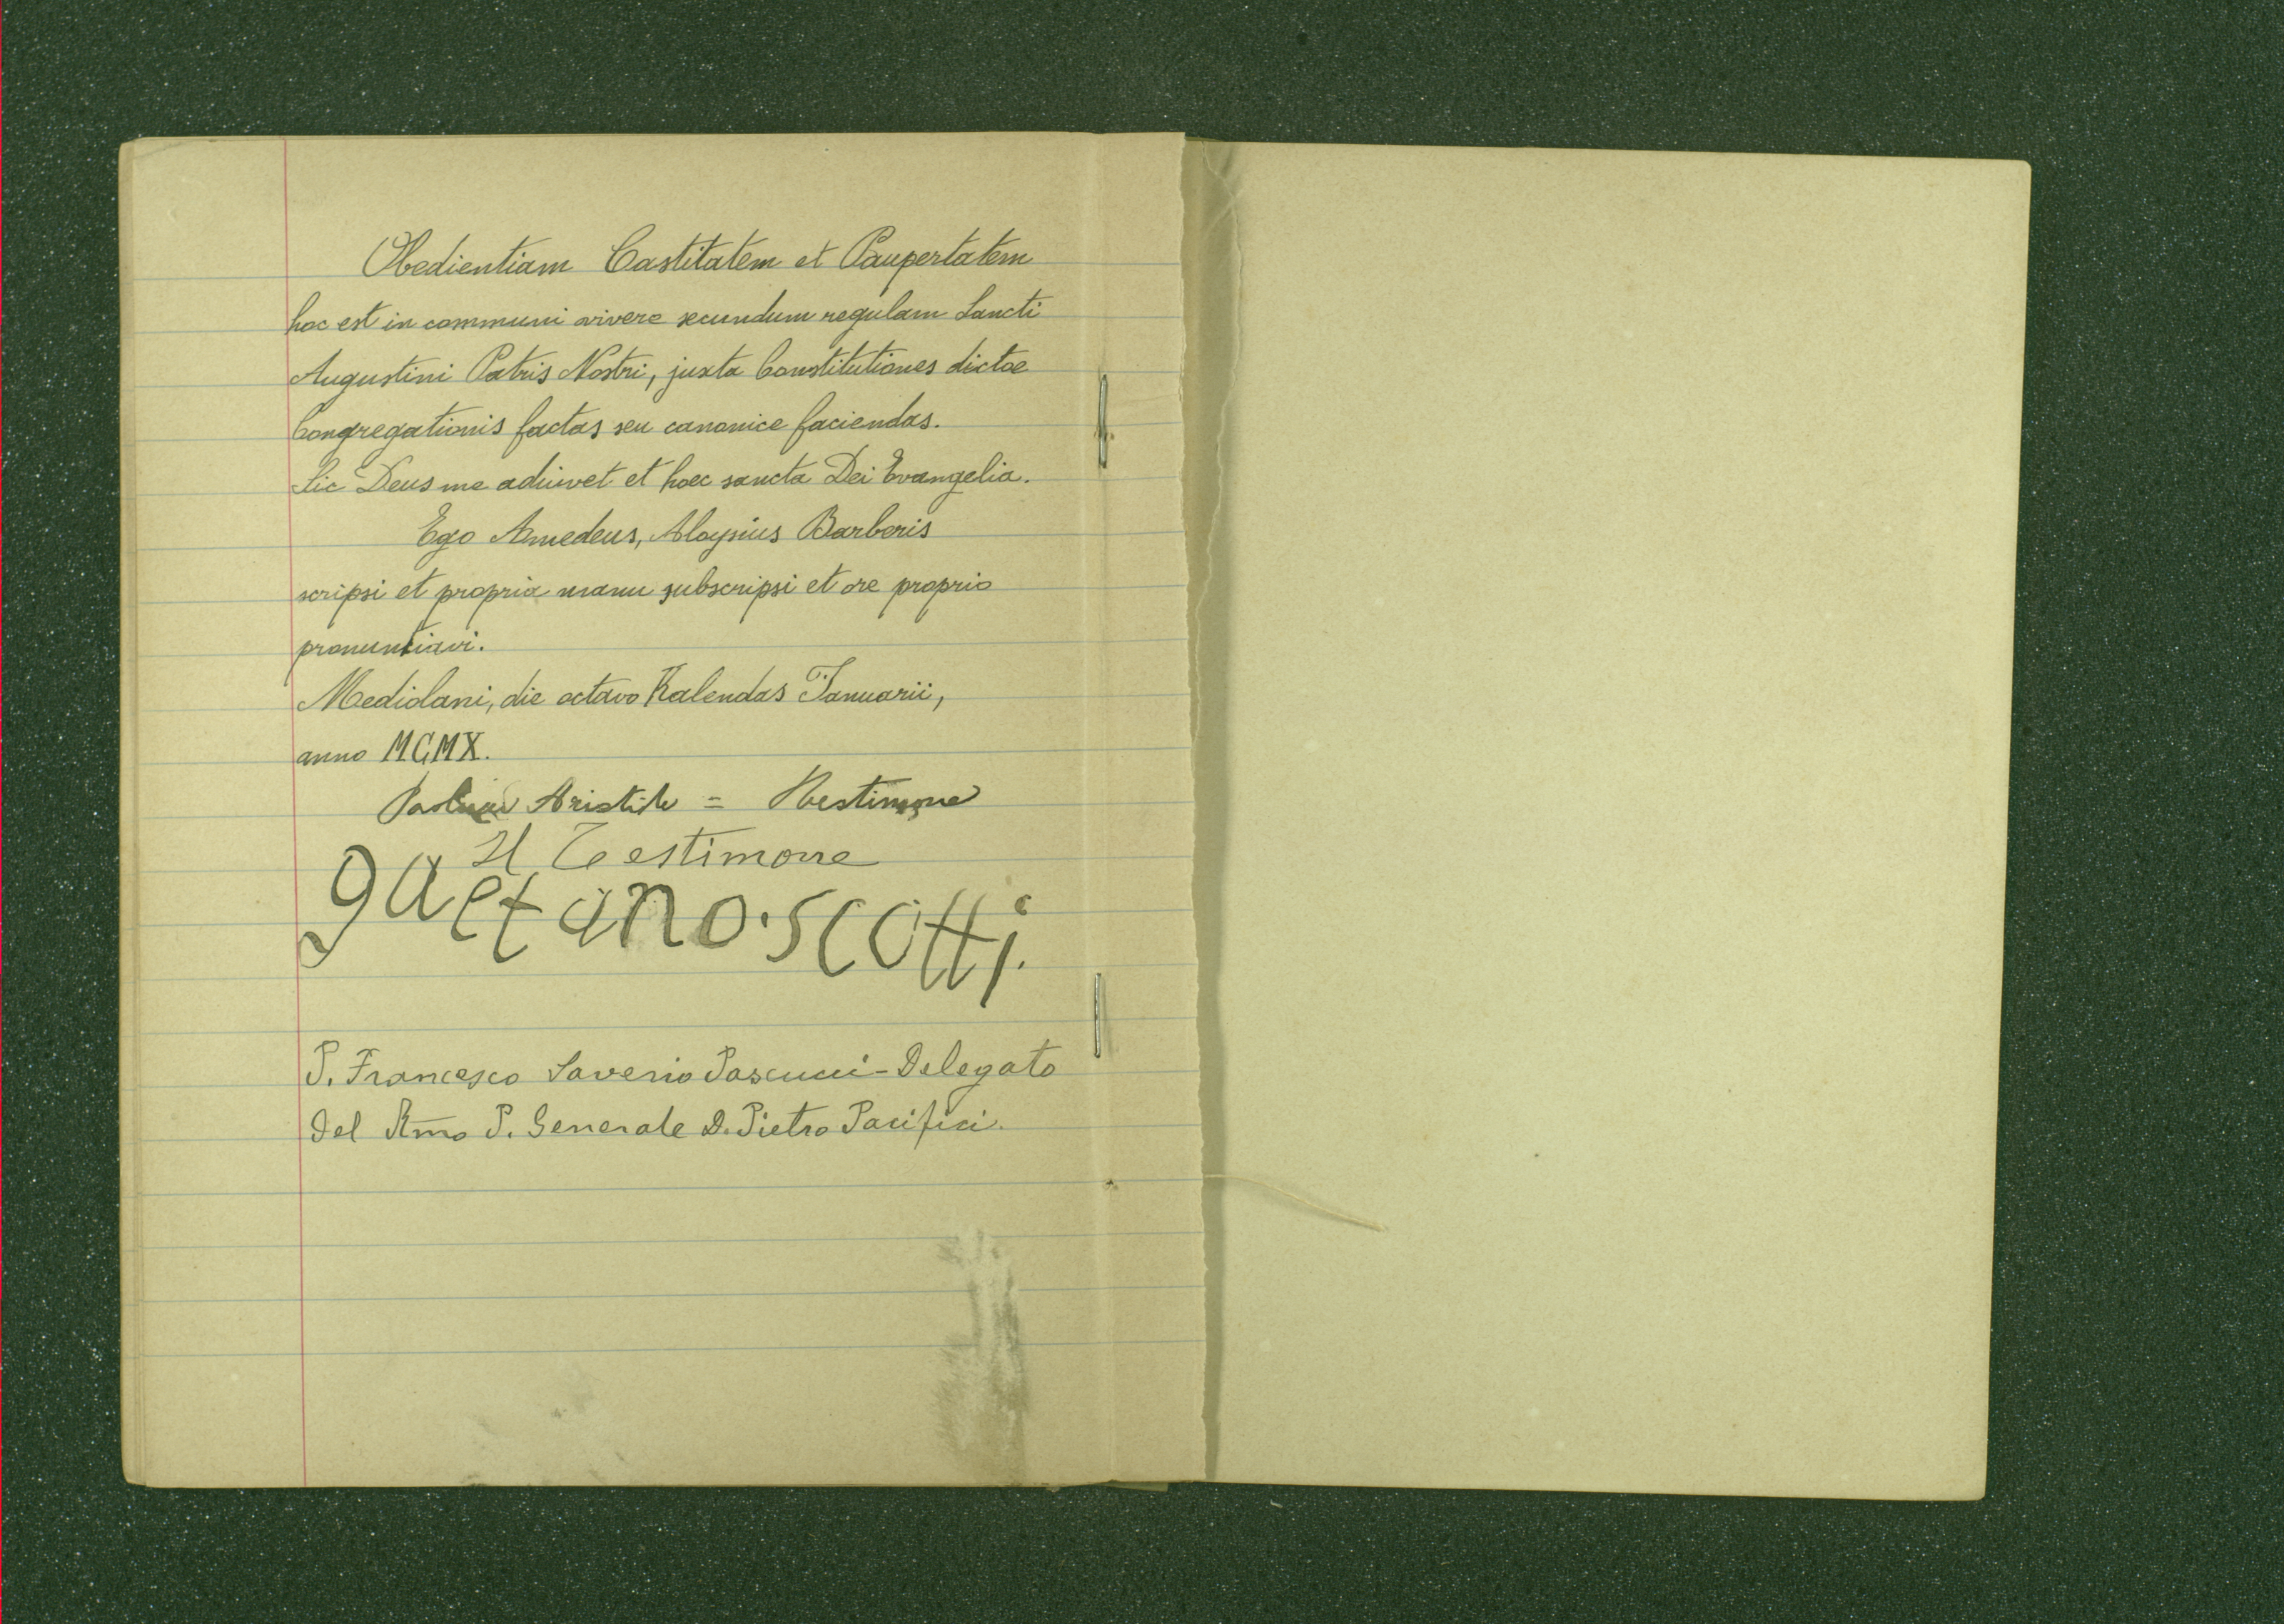 Obedientiam Castitatem et Paupertatem
hoc est in communi vivere secundum regulam Sancti
Augustini Patris Nostri, juxta Constitutiones dictae
Congregationis factas seu canonice faciendas.
Sic Deus me adiuvet et haec sancta Dei Evangelia.
Ego Amedeus, Aloysius Barberis
scripsi et propria manu subscripsi et ore proprio
pronuntiavi.
Mediolani, die octavo Kalendas Januarii,
anno MCMX.
Aristide =
Il Testimone
gaetano. scotti.
P. Francesco Saverio Pascucci - Delegato
del Rmo P. Generale D. Pietro Pacifici.